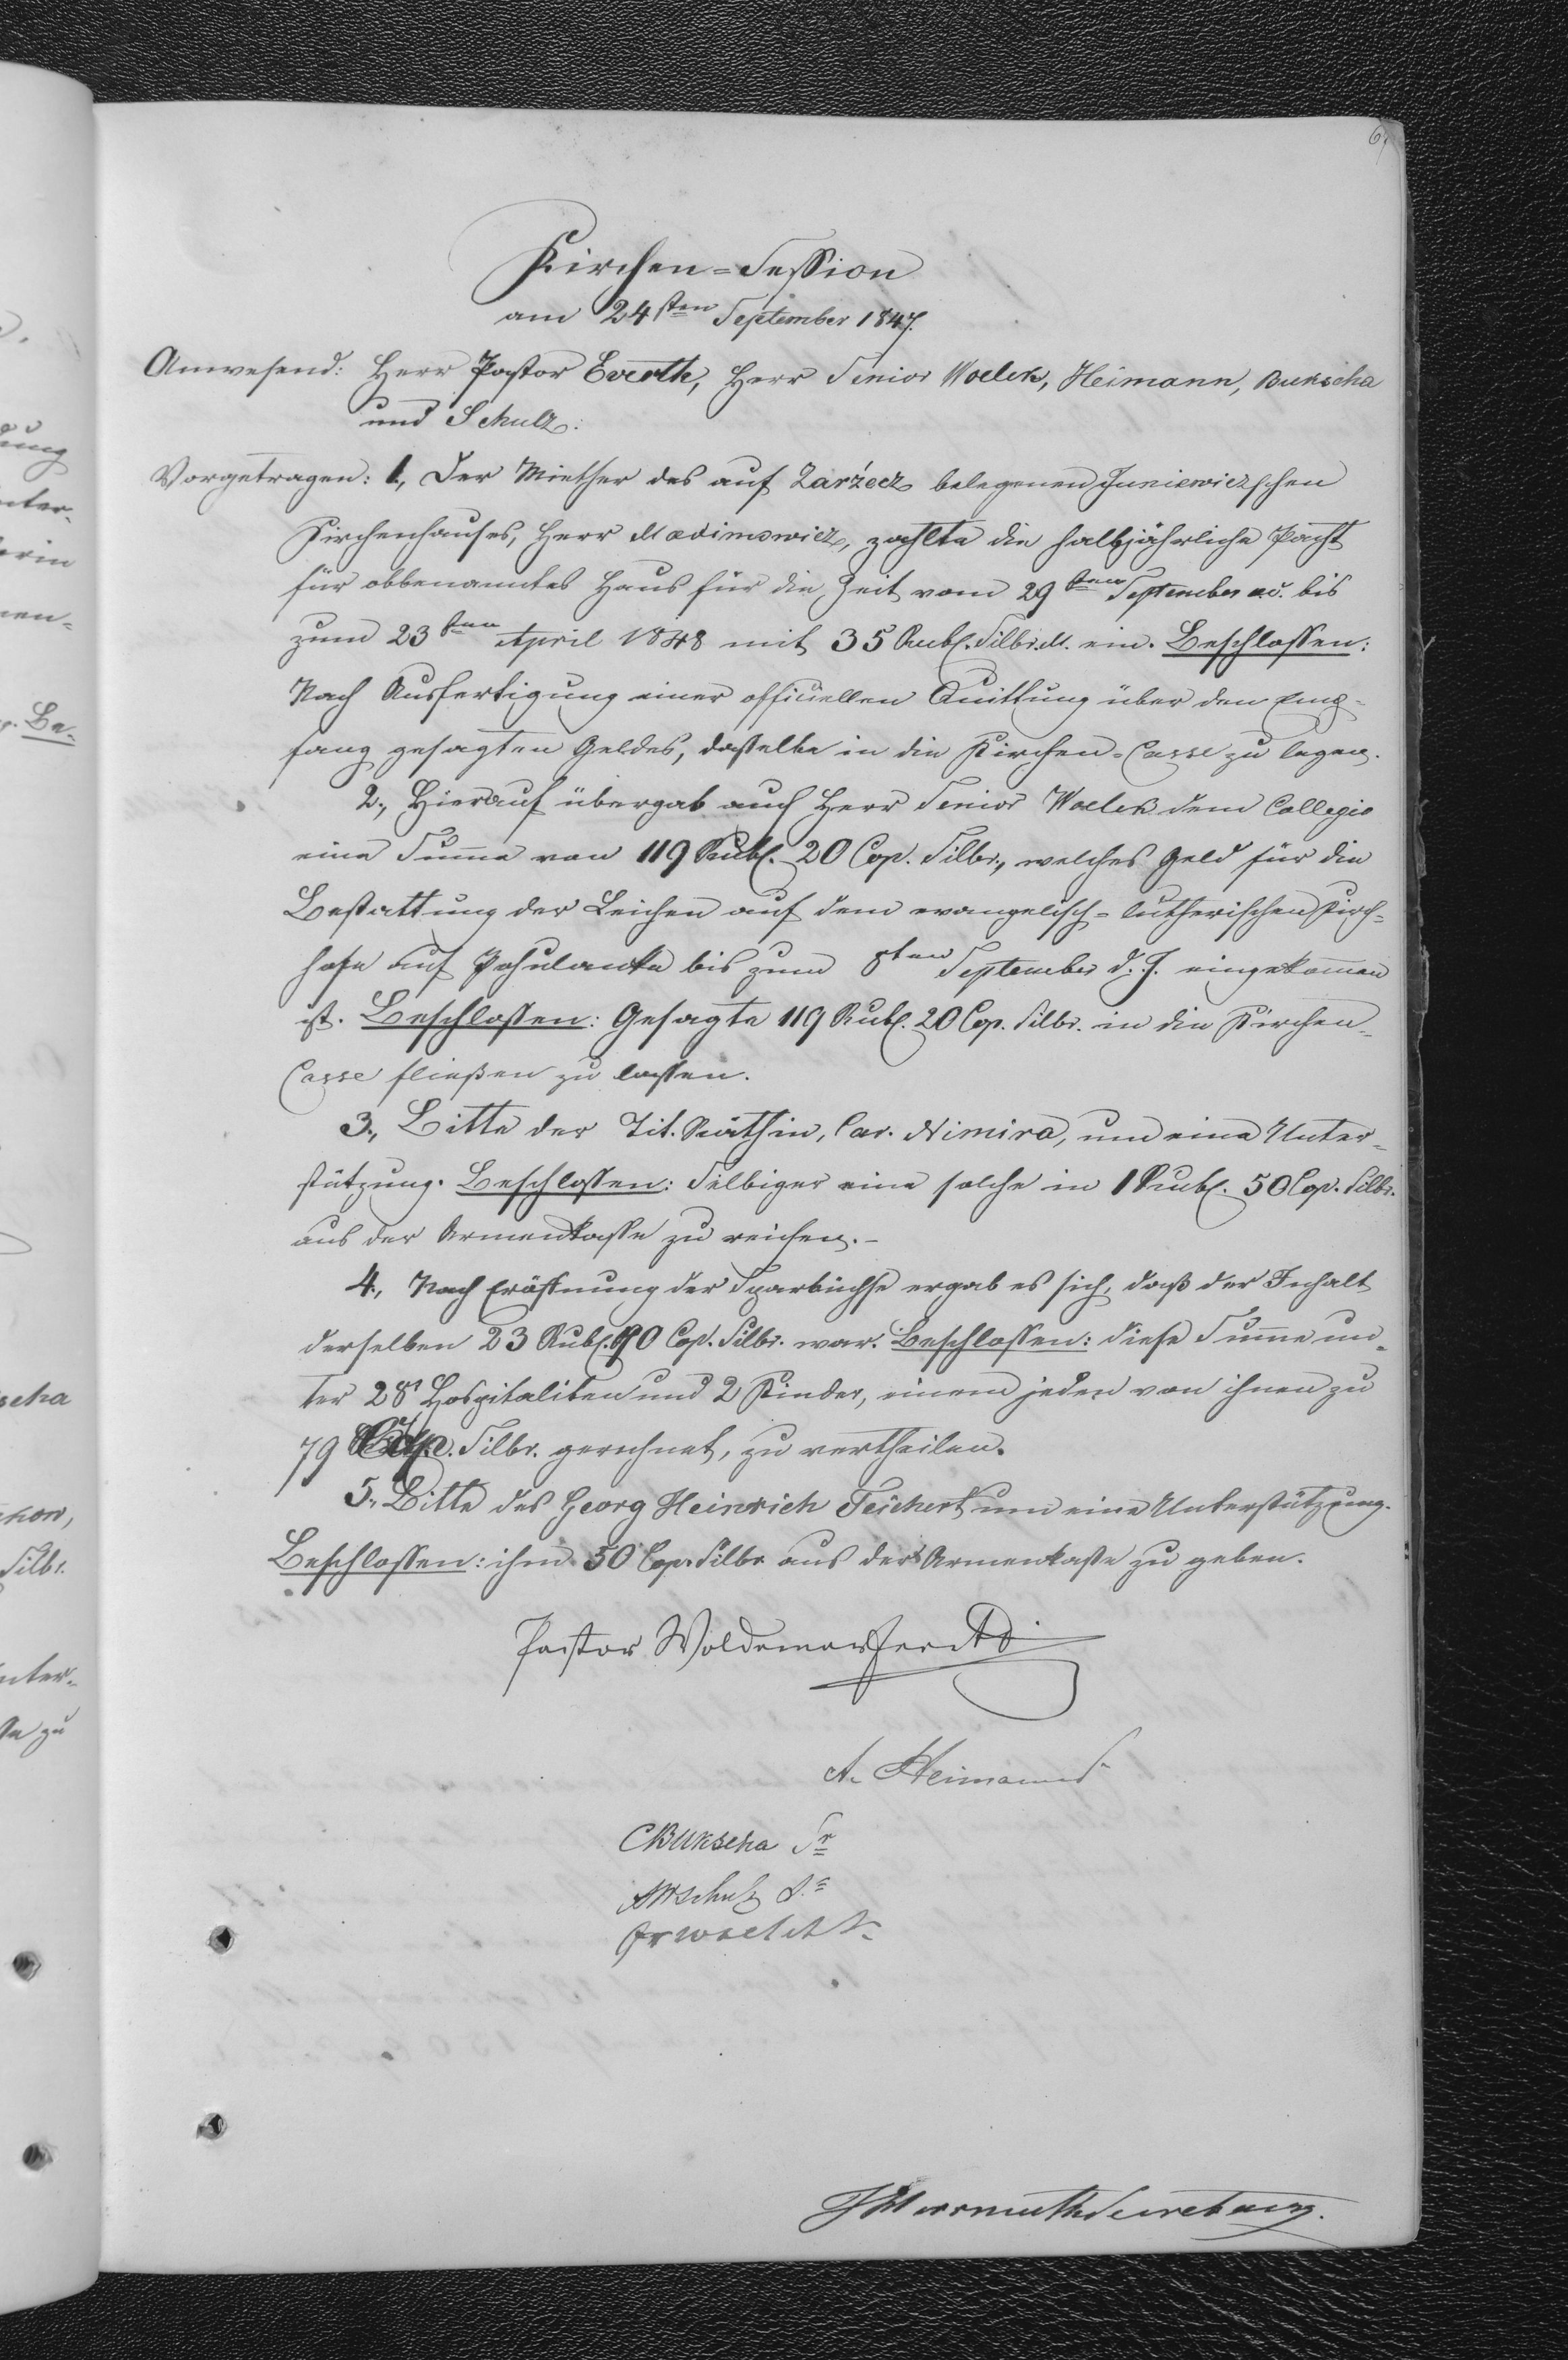 Kirchen=Session
am 24sten September 1847.
Anwesend: Herr Pastor Everth, Herr Senior Woelck, Heimann, Bukscha
und Schulz.
Vorgetragen: 1., Der Miether des auf Zarzecz belegenen Juniewiczschen
Kirchenhauses, Herr Maximowicz, zahlte die halbjährliche Pacht
für obbenanntes Haus für die Zeit vom 29sten September a.c. bis
zum 23sten April 1848 mit 35 Rub. Silbr.M. ein. Beschlossen:
Nach Ausfertigung einer officiellen Quittung über den Emp=
fang gesagten Geldes, dasselbe in die Kirchen=Casse zu legen.
2., Hierauf übergab auch Herr Senior Woelck dem Collegio
eine Summe von 119 Rub. 20 Cop. Silbr., welches Geld für die
Bestattung der Leichen auf dem evangelisch=lutherischen Kirch=
hofe auf Pohulanka bis zum 8ten September d. J. eingekommen
ist. Beschlossen: Gesagte 119 Rub. 20 Cop. Silbr. in die Kirchen=
Casse fließen zu lassen.
3., Bitte der Tit. Räthin, Car. Nimira, um eine Unter=
stützung. Beschlossen: Selbiger eine solche in 1 Rub. 50 Cop. Silbr.
aus der Armenkasse zu reichen.-
4., Nach Eröffnung der Sparbüchse ergab es sich, daß der Inhalt
derselben 23 Rub. 70 Cop. Silbr. war. Beschlossen: diese Summe un=
ter 28 Hospitaliten und 2 Kinder, einem jeden von ihnen zu
79 Cop. Silbr. gerechnet, zu vertheilen.
5., Bitte des Georg Heinrich Teichert um eine Unterstützung.
Beschlossen: ihm 50 Cop. Silbr aus der Armenkasse zu geben.
Pastor Woldemar Everth
A. Heimann
CBukscha Sr
Schulz S.
Fr Woelck
Secretair.